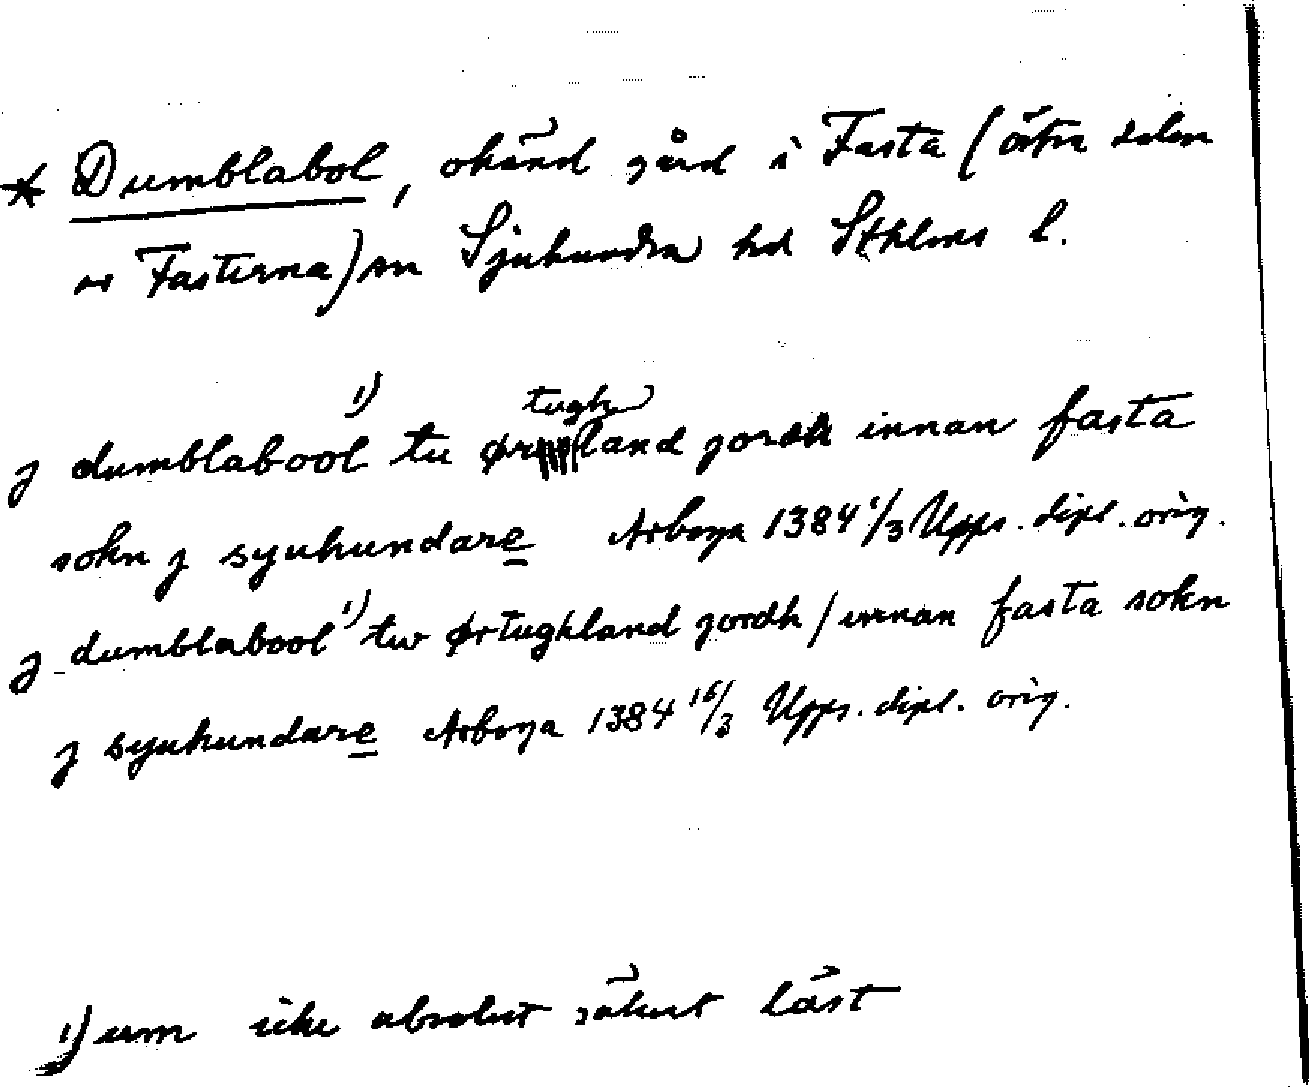 * Dumblabol, okänd gård i Fasta (östra delen
av Fasterna) sn Sjuhundra hd Sthlms l.
j dumblabool 1) tu ørtughland jordh innan fasta
sokn j syuhundare Arboga 1384 1/3 Upps. dipl. orig.
j dumblabool 1) tw ørtughland jordh / innan fasta sokn
j syuhundare Arboga 1384 16/3 Upps. dipl. orig.
1) um icke absolut säkert läst